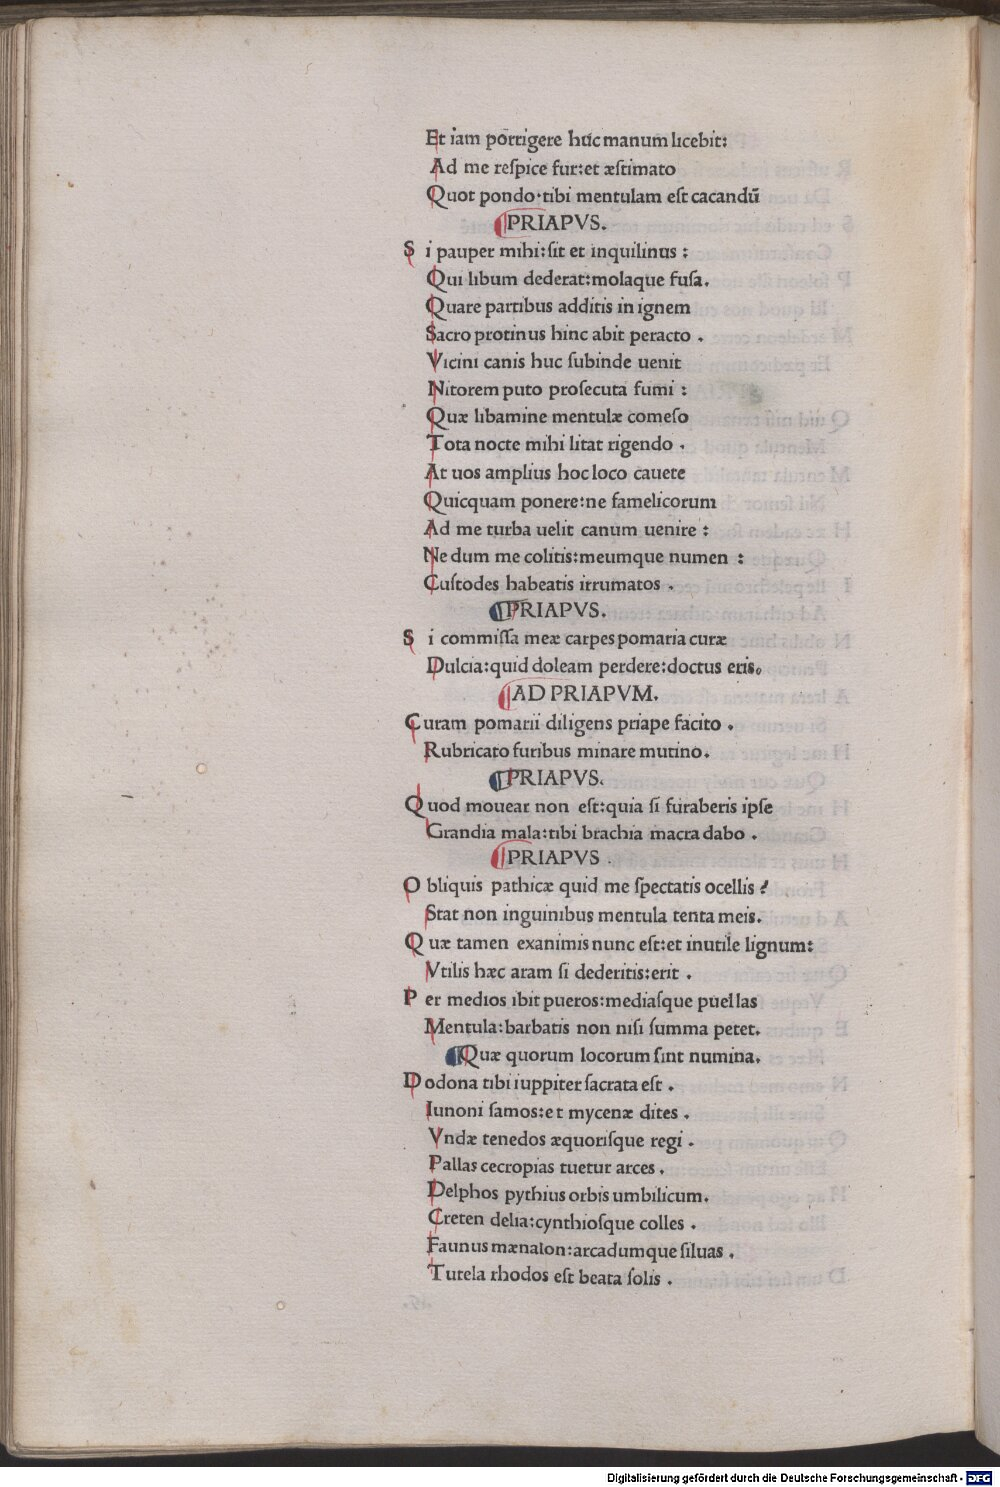 Et iam porrigere huc manum licebit:
Ad me reſpice fur:et æſtimato
Quot pondo·tibi mentulam eſt cacandū
¶PRIAPVS.
S i pauper mihi:ſit et inquilinus :
Qui libum dederat:molaque fuſa.
Quare partibus additis in ignem
Sacro protinus hinc abit peracto .
Vicini canis huc ſubinde uenit
Nitorem puto proſecuta fumi :
Quæ libamine mentulæ comeſo
Tota nocte mihi litat rigendo .
At uos amplius hoc loco cauete
Quicquam ponere:ne famelicorum
Ad me turba uelit canum uenire :
Ne dum me colitis:meumque numen :
Cuſtodes habeatis irrumatos .
¶PRIAPVS.
S i commiſſa meæ carpes pomaria curæ
Dulcia:quid doleam perdere:doctus eris.
¶AD PRIAPVM.
Curam pomarii diligens priape facito .
Rubricato furibus minare mutino.
¶PRIAPVS.
Quod mouear non eſt:quia ſi furaberis ipſe
Grandia mala:tibi brachia macra dabo .
¶PRIAPVS .
O bliquis pathicæ quid me ſpectatis ocellis ?
Stat non inguinibus mentula tenta meis.
Q uæ tamen exanimis nunc eſt:et inutile lignum:
Vtilis hæc aram ſi dederitis:erit .
P er medios ibit pueros:mediaſque puellas
Mentula:barbatis non niſi ſumma petet.
¶Quæ quorum locorum ſint numina.
D odona tibi iuppiter ſacrata eſt .
Iunoni ſamos:et mycenæ dites .
Vndæ tenedos æquoriſque regi .
Pallas cecropias tuetur arces .
Delphos pythius orbis umbilicum.
Creten delia:cynthioſque colles .
Faunus mænalon:arcadumque ſiluas .
Tutela rhodos eſt beata ſolis .
Digitalisierung gefördert durch die Deutsche Forschungsgemeinschaft - DFG